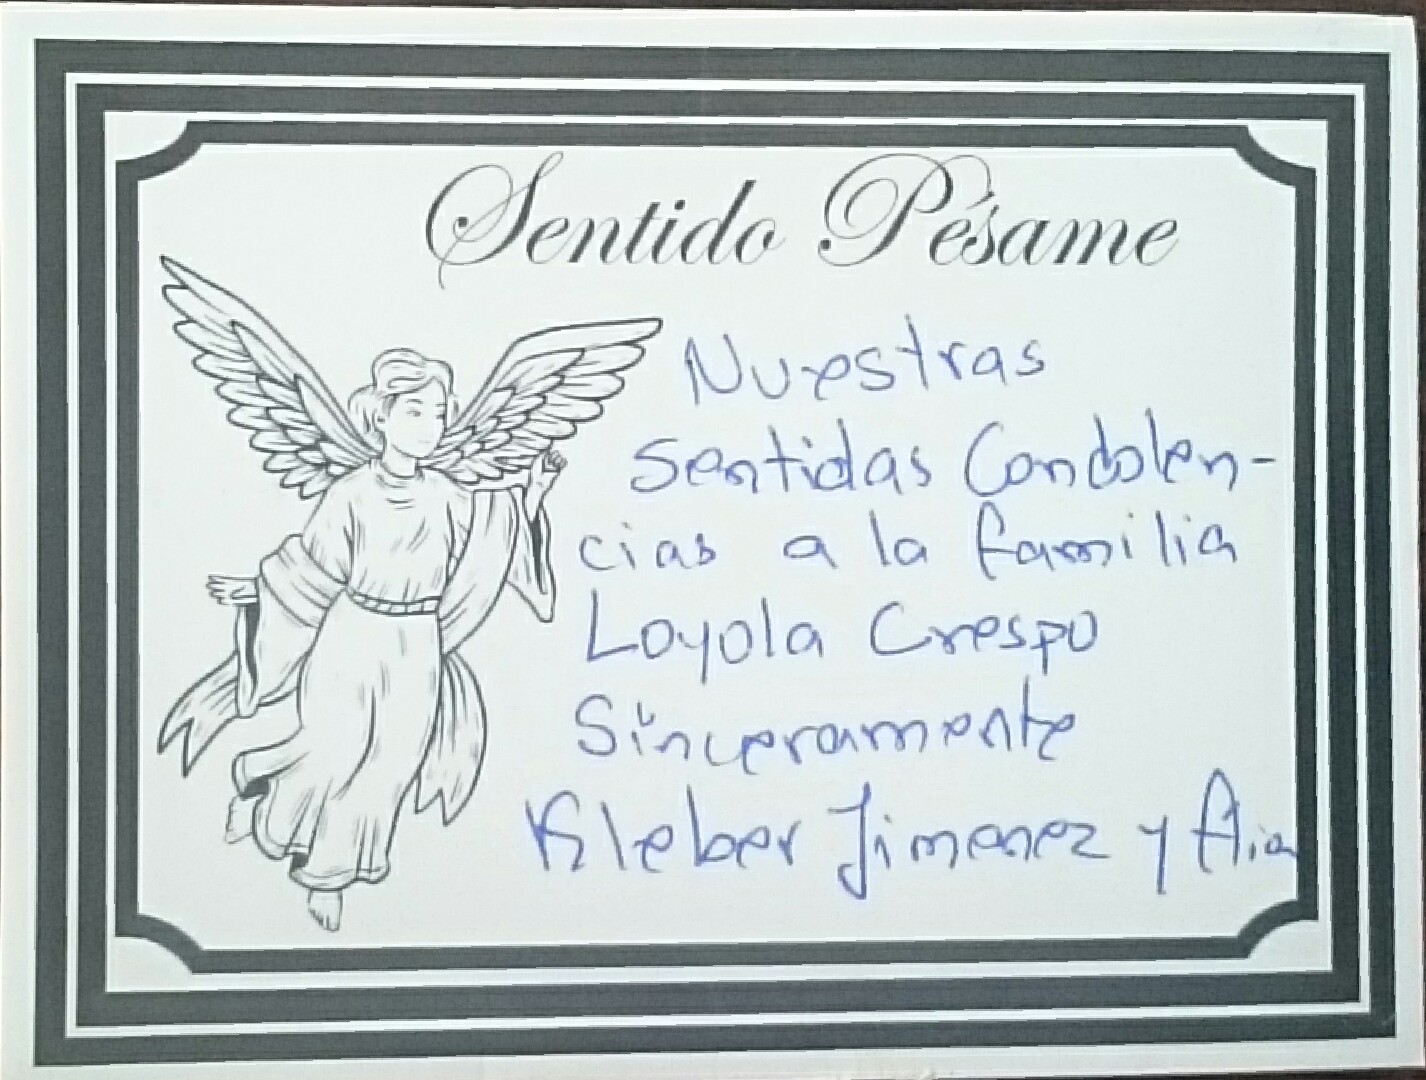 Sentido Pésame
Nuestras
sentidas Condolen-
cias a la familia
Loyola Crespo
Sinceramente
Kleber Jimenez y